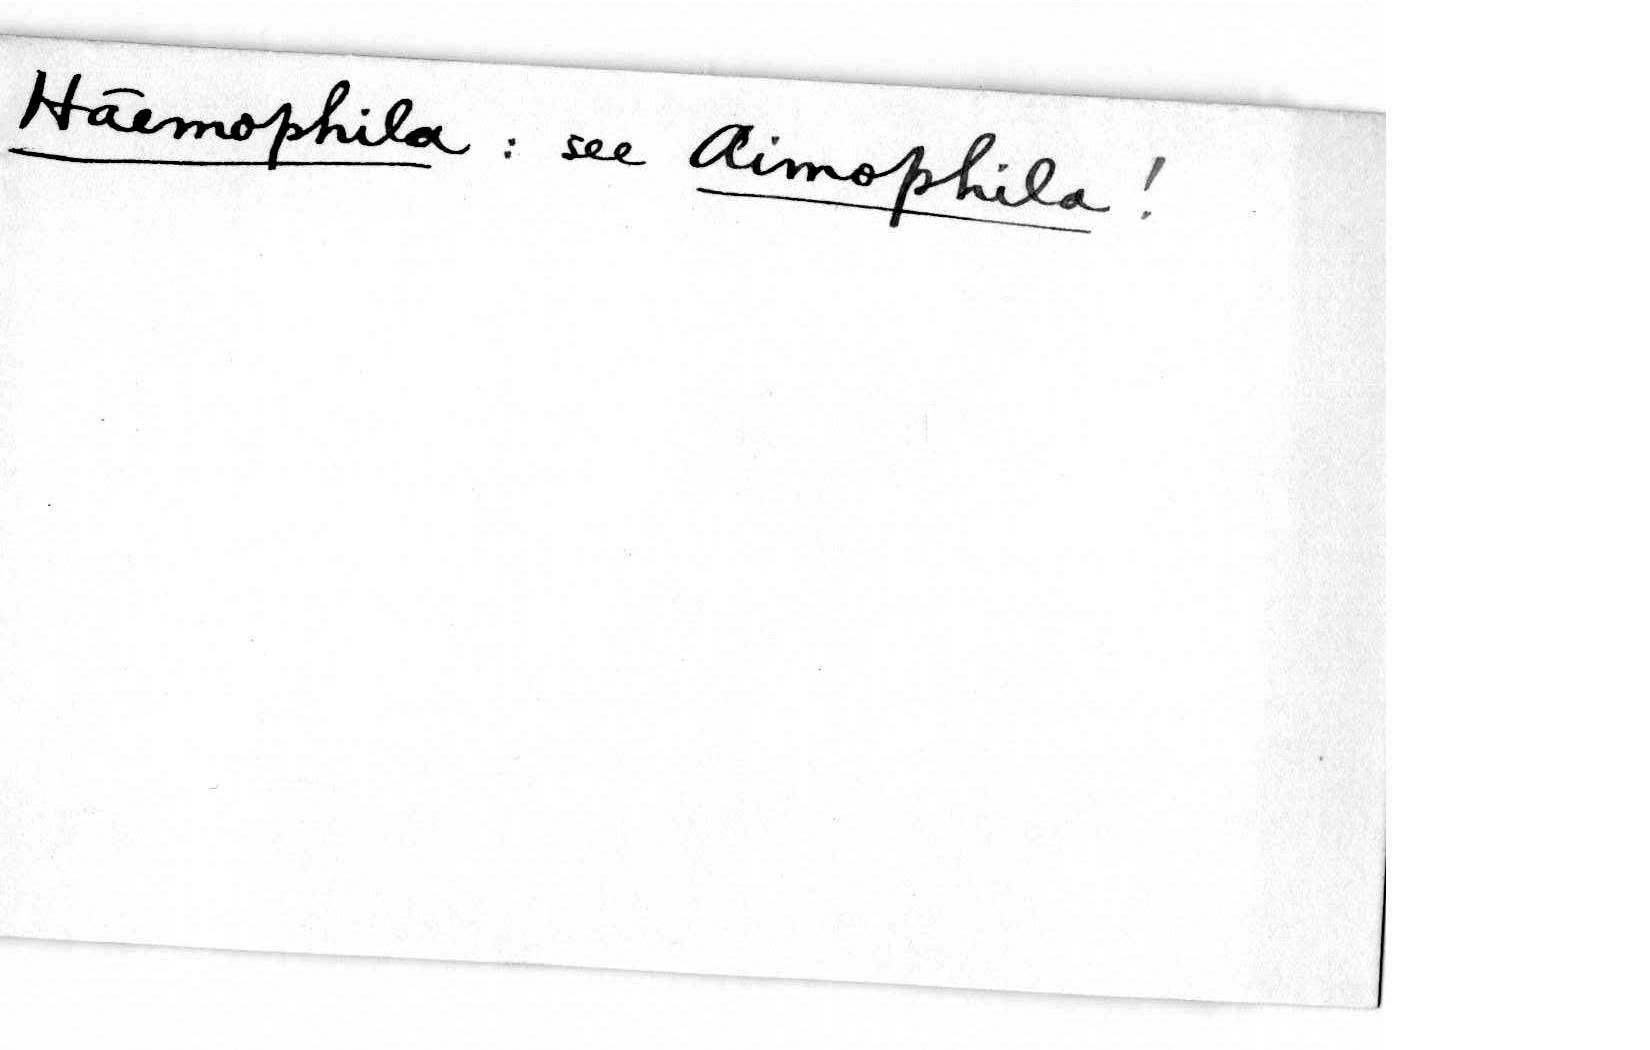 Hāemophila : see Aimophila !